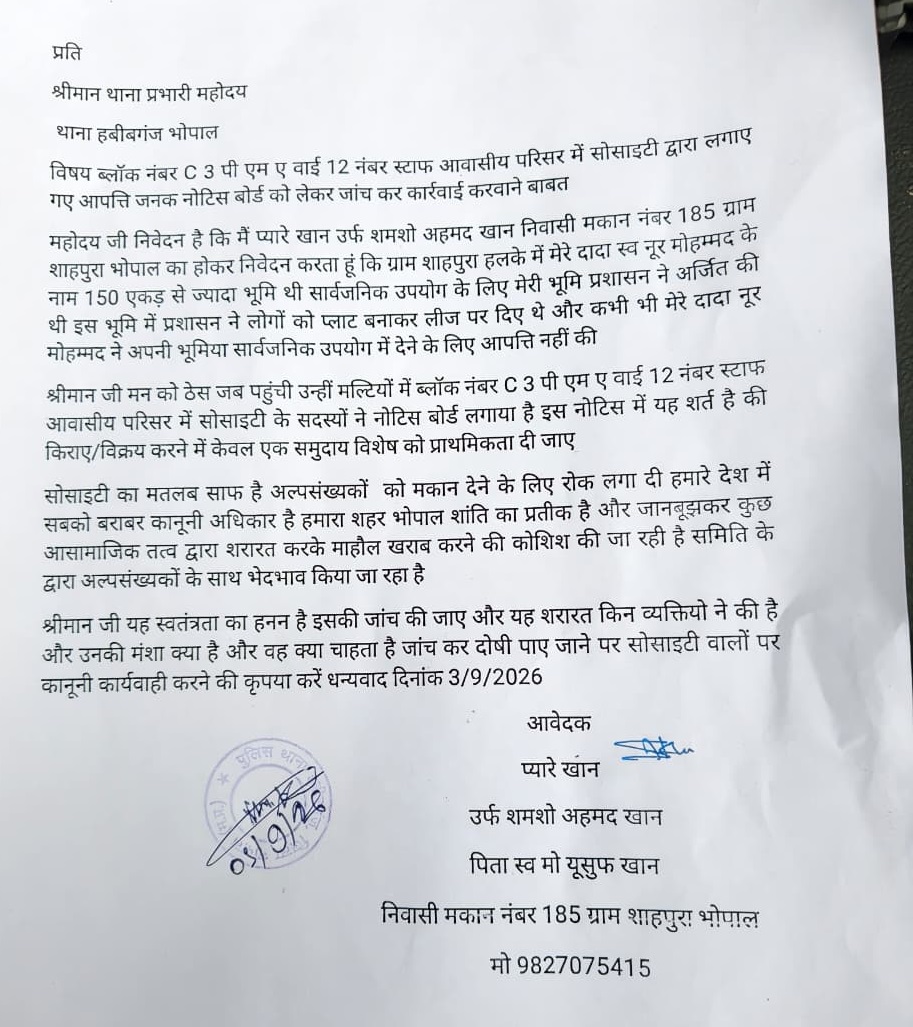 प्रति
श्रीमान थाना प्रभारी महोदय
थाना हबीबगंज भोपाल
विषय ब्लॉक नंबर C 3 पी एम ए वाई 12 नंबर स्टाफ आवासीय परिसर में सोसाइटी द्वारा लगाए
गए आपत्ति जनक नोटिस बोर्ड को लेकर जांच कर कार्रवाई करवाने बाबत
महोदय जी निवेदन है कि मैं प्यारे खान उर्फ शमशो अहमद खान निवासी मकान नंबर 185 ग्राम
शाहपुरा भोपाल का होकर निवेदन करता हूं कि ग्राम शाहपुरा हलके में मेरे दादा स्व नूर मोहम्मद के
नाम 150 एकड़ से ज्यादा भूमि थी सार्वजनिक उपयोग के लिए मेरी भूमि प्रशासन ने अर्जित की
थी इस भूमि में प्रशासन ने लोगों को प्लाट बनाकर लीज पर दिए थे और कभी भी मेरे दादा नूर
मोहम्मद ने अपनी भूमिया सार्वजनिक उपयोग में देने के लिए आपत्ति नहीं की
श्रीमान जी मन को ठेस जब पहुंची उन्हीं मल्टियों में ब्लॉक नंबर C 3 पी एम ए वाई 12 नंबर स्टाफ
आवासीय परिसर में सोसाइटी के सदस्यों ने नोटिस बोर्ड लगाया है इस नोटिस में यह शर्त है की
किराए/विक्रय करने में केवल एक समुदाय विशेष को प्राथमिकता दी जाए
सोसाइटी का मतलब साफ है अल्पसंख्यकों को मकान देने के लिए रोक लगा दी हमारे देश में
सबको बराबर कानूनी अधिकार है हमारा शहर भोपाल शांति का प्रतीक है और जानबूझकर कुछ
आसामाजिक तत्व द्वारा शरारत करके माहौल खराब करने की कोशिश की जा रही है समिति के
द्वारा अल्पसंख्यकों के साथ भेदभाव किया जा रहा है
श्रीमान जी यह स्वतंत्रता का हनन है इसकी जांच की जाए और यह शरारत किन व्यक्तियो ने की है
और उनकी मंशा क्या है और वह क्या चाहता है जांच कर दोषी पाए जाने पर सोसाइटी वालों पर
कानूनी कार्यवाही करने की कृपया करें धन्यवाद दिनांक 3/9/2026
आवेदक
प्यारे खान
उर्फ शमशो अहमद खान
पिता स्व मो यूसुफ खान
निवासी मकान नंबर 185 ग्राम शाहपुरा भोपाल
मो 9827075415
पुलिस थाना
03/9/26